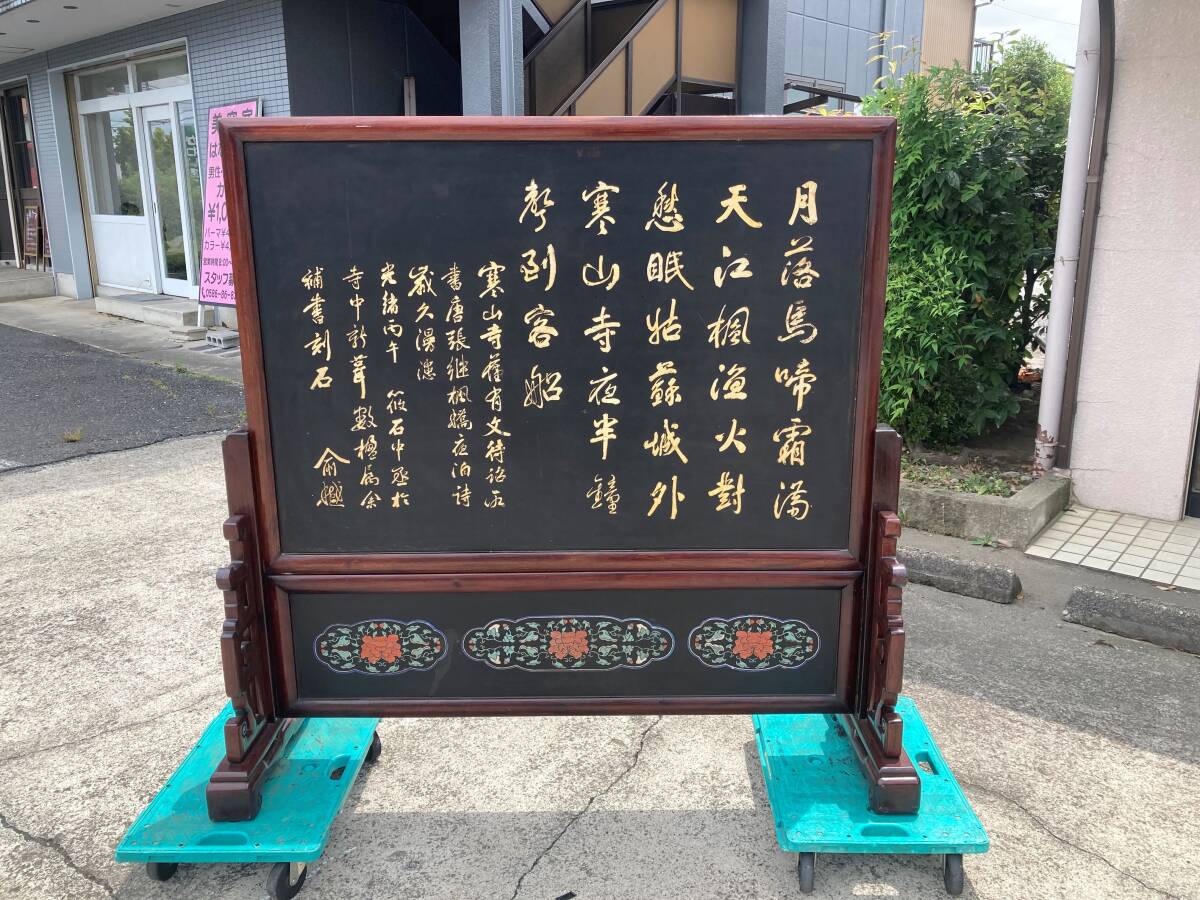 月落烏啼霜滿
天江楓漁火對
愁眠姑蘇城外
寒山寺夜半鐘
聲到客船
寒山寺舊有文待詔所
書唐張繼楓橋夜泊詩
歲久漫漶
光緒丙午 筱石中丞於
寺中新葺數楹屬余
補書刻石 俞樾
美容室
は
男性
カ
¥1,0
パーマ¥4
カラー¥4
営業時間8:00~
スタッフ
0586-86-8